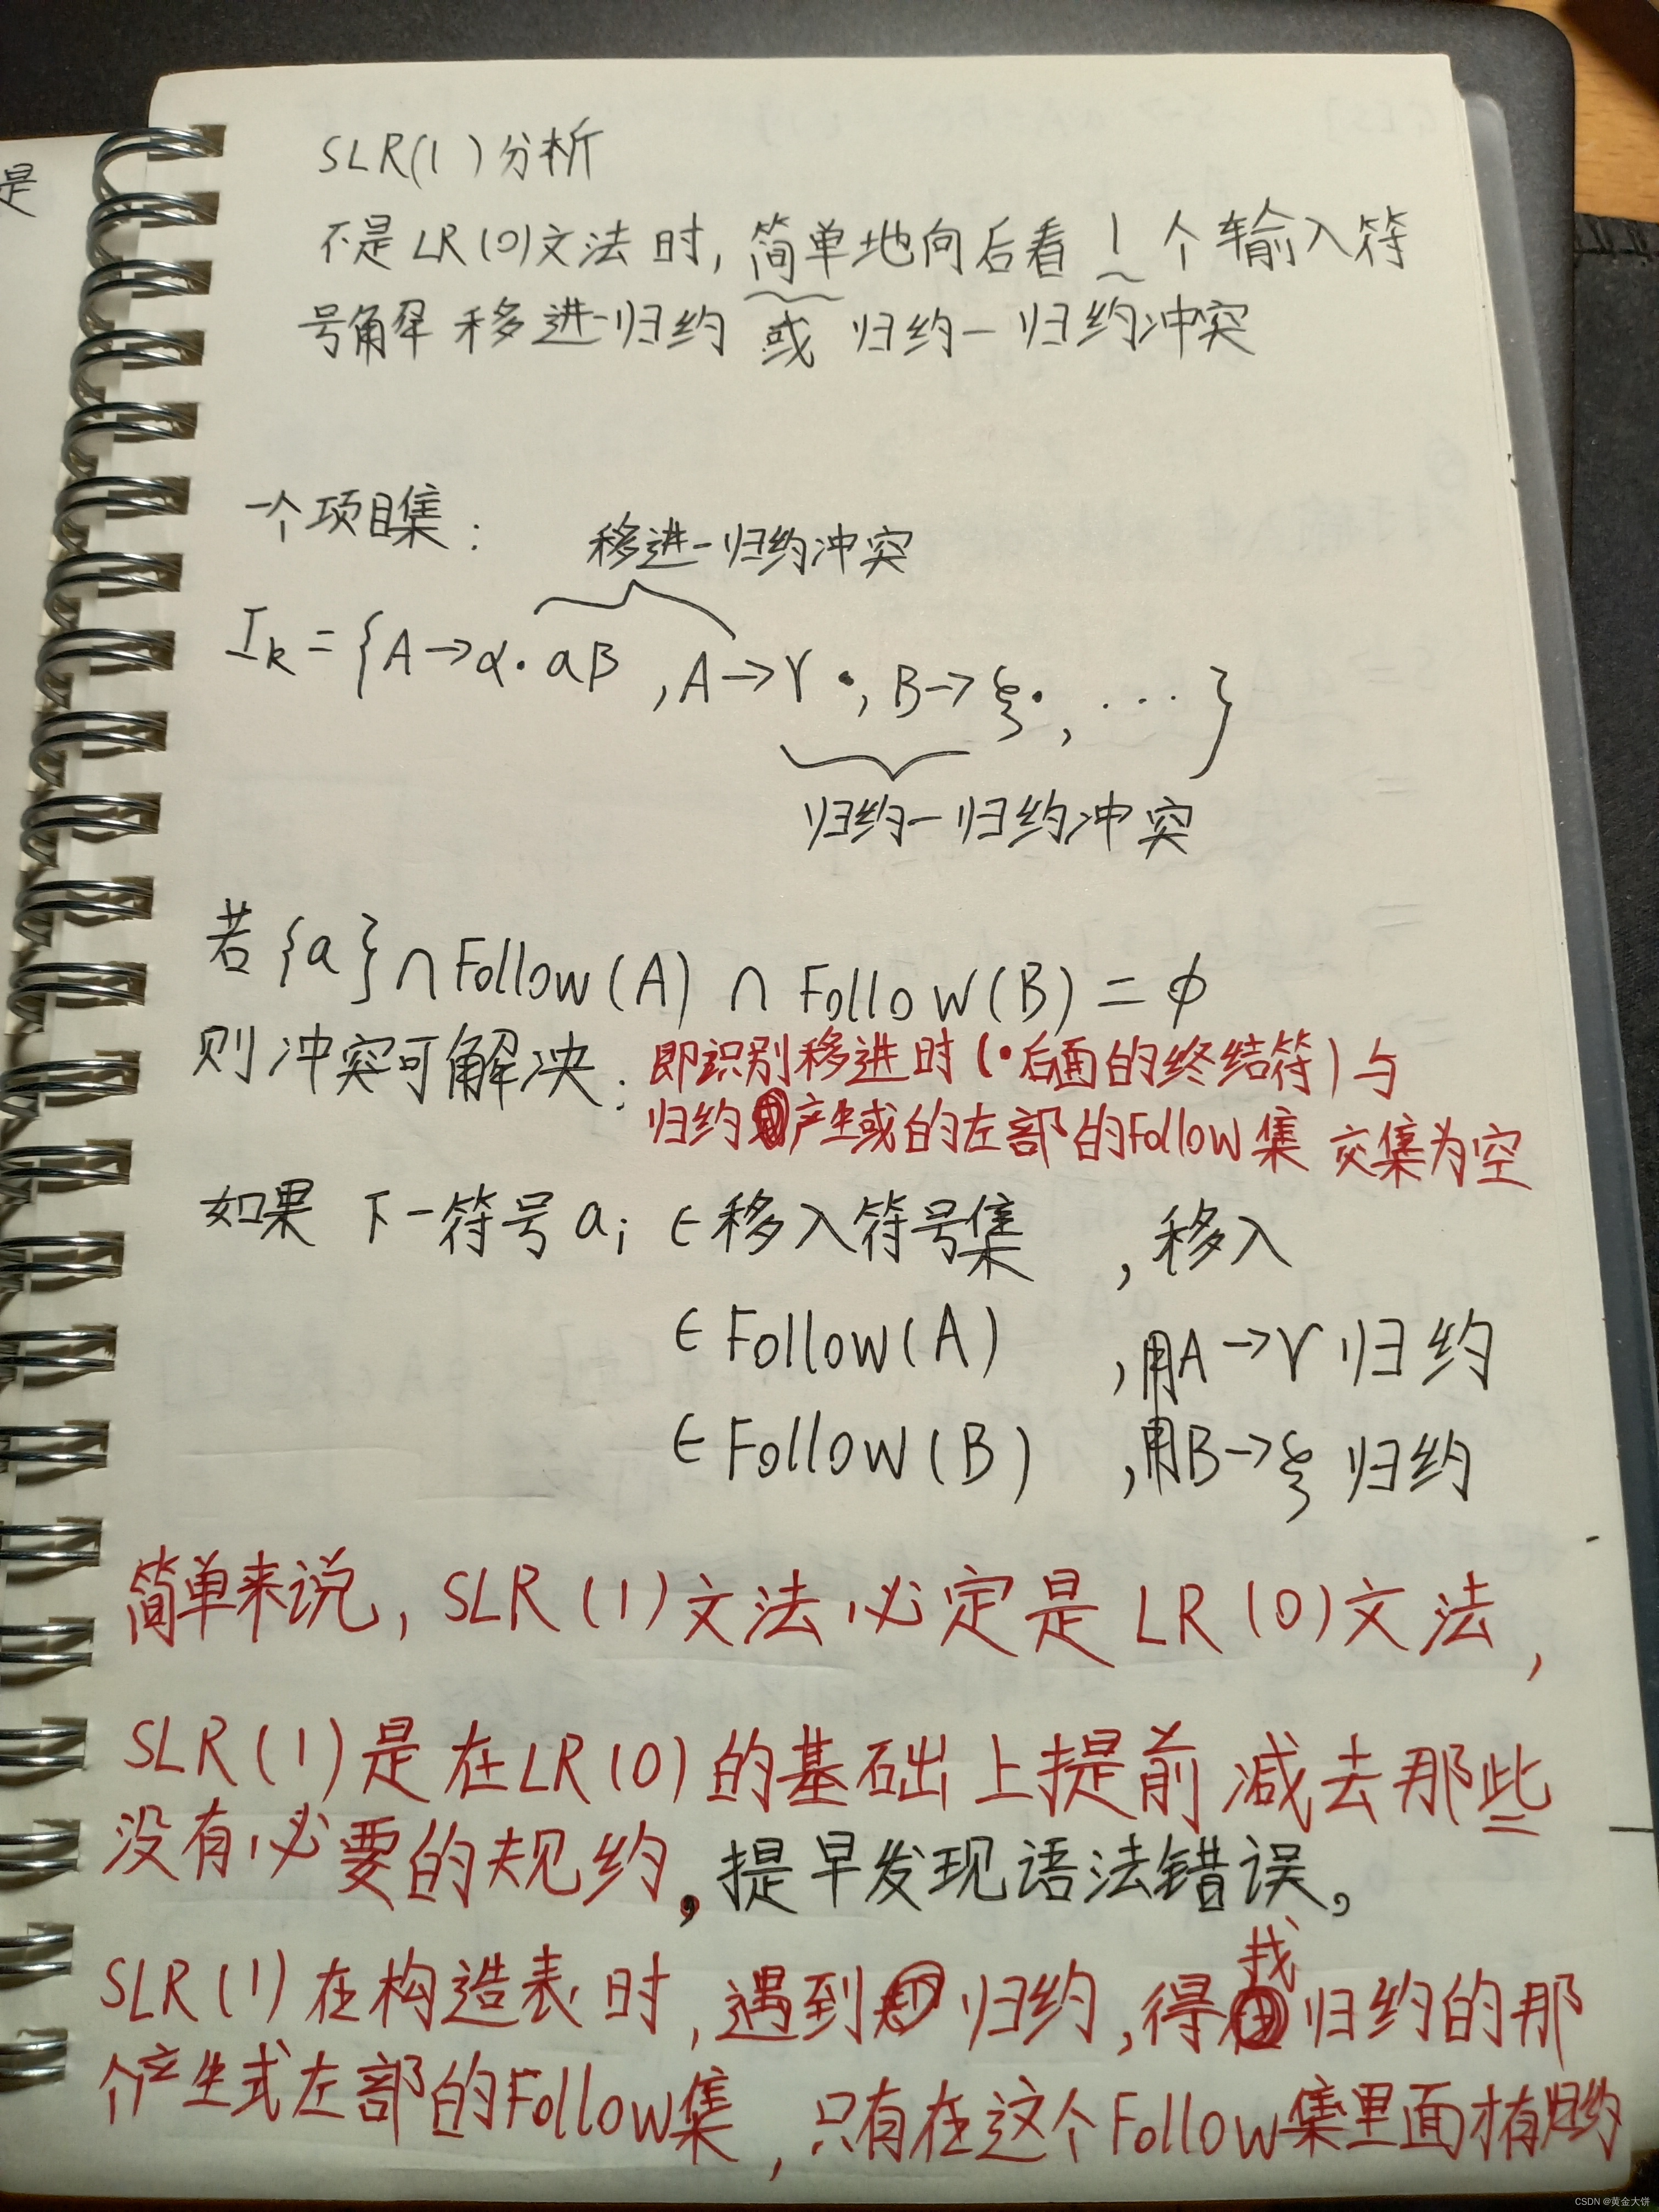 是
SLR(1)分析
不是LR(0)文法时,简单地向后看1个输入符
号解 移进-归约 或 归约-归约冲突
一个项目集:
移进-归约冲突
Ik={A→α·aβ,A→γ·,B→ξ·,...}
归约-归约冲突
若{a}∩Follow(A)∩Follow(B)=ϕ
则冲突可解决:即识别移进时(·后面的终结符)与
归约产生或的左部的Follow集 交集为空
如果 下一符号ai ∈移入符号集 ,移入
∈Follow(A) ,用A→γ归约
∈Follow(B) ,用B→ξ归约
简单来说,SLR(1)文法必定是LR(0)文法,
SLR(1)是在LR(0)的基础上提前减去那些
没有必要的规约,提早发现语法错误。
SLR(1)在构造表时,遇到归约,得找归约的那
个产生式左部的Follow集,只有在这个Follow集里面才有归约
CSDN @黄金大饼